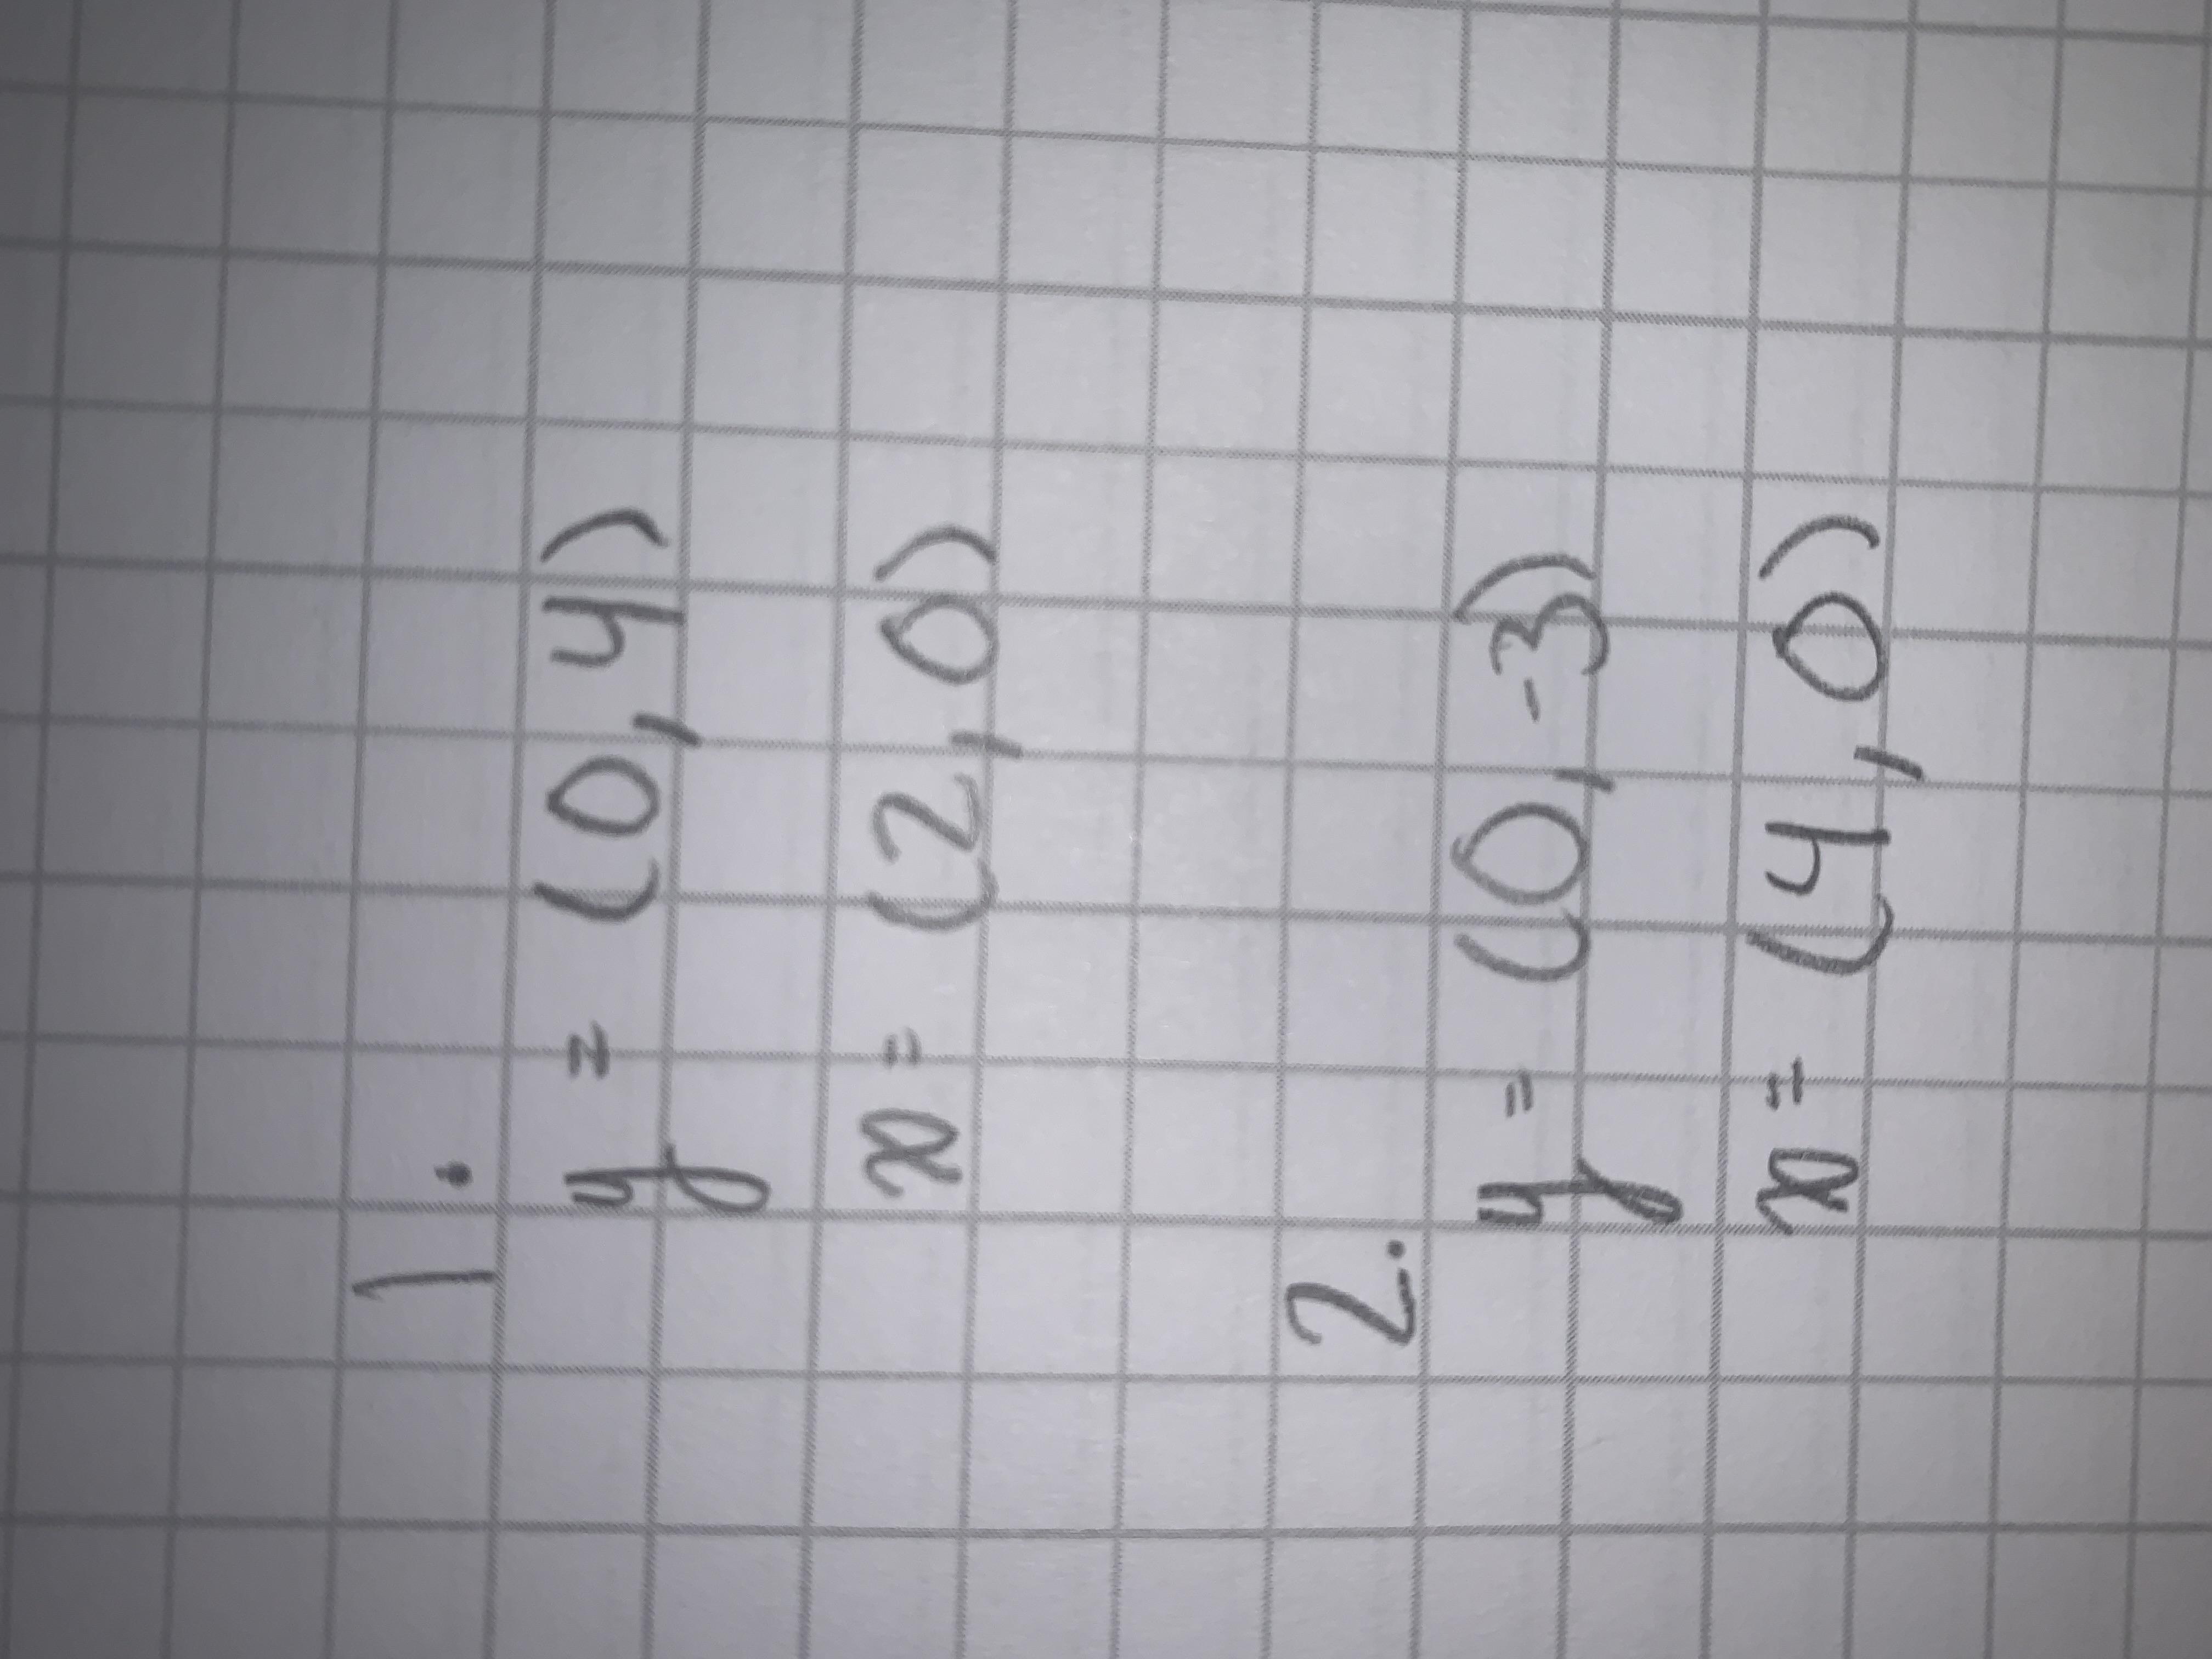 1.
y = (0,4)
x = (2,0)
2.
y = (0,-3)
x = (4,0)